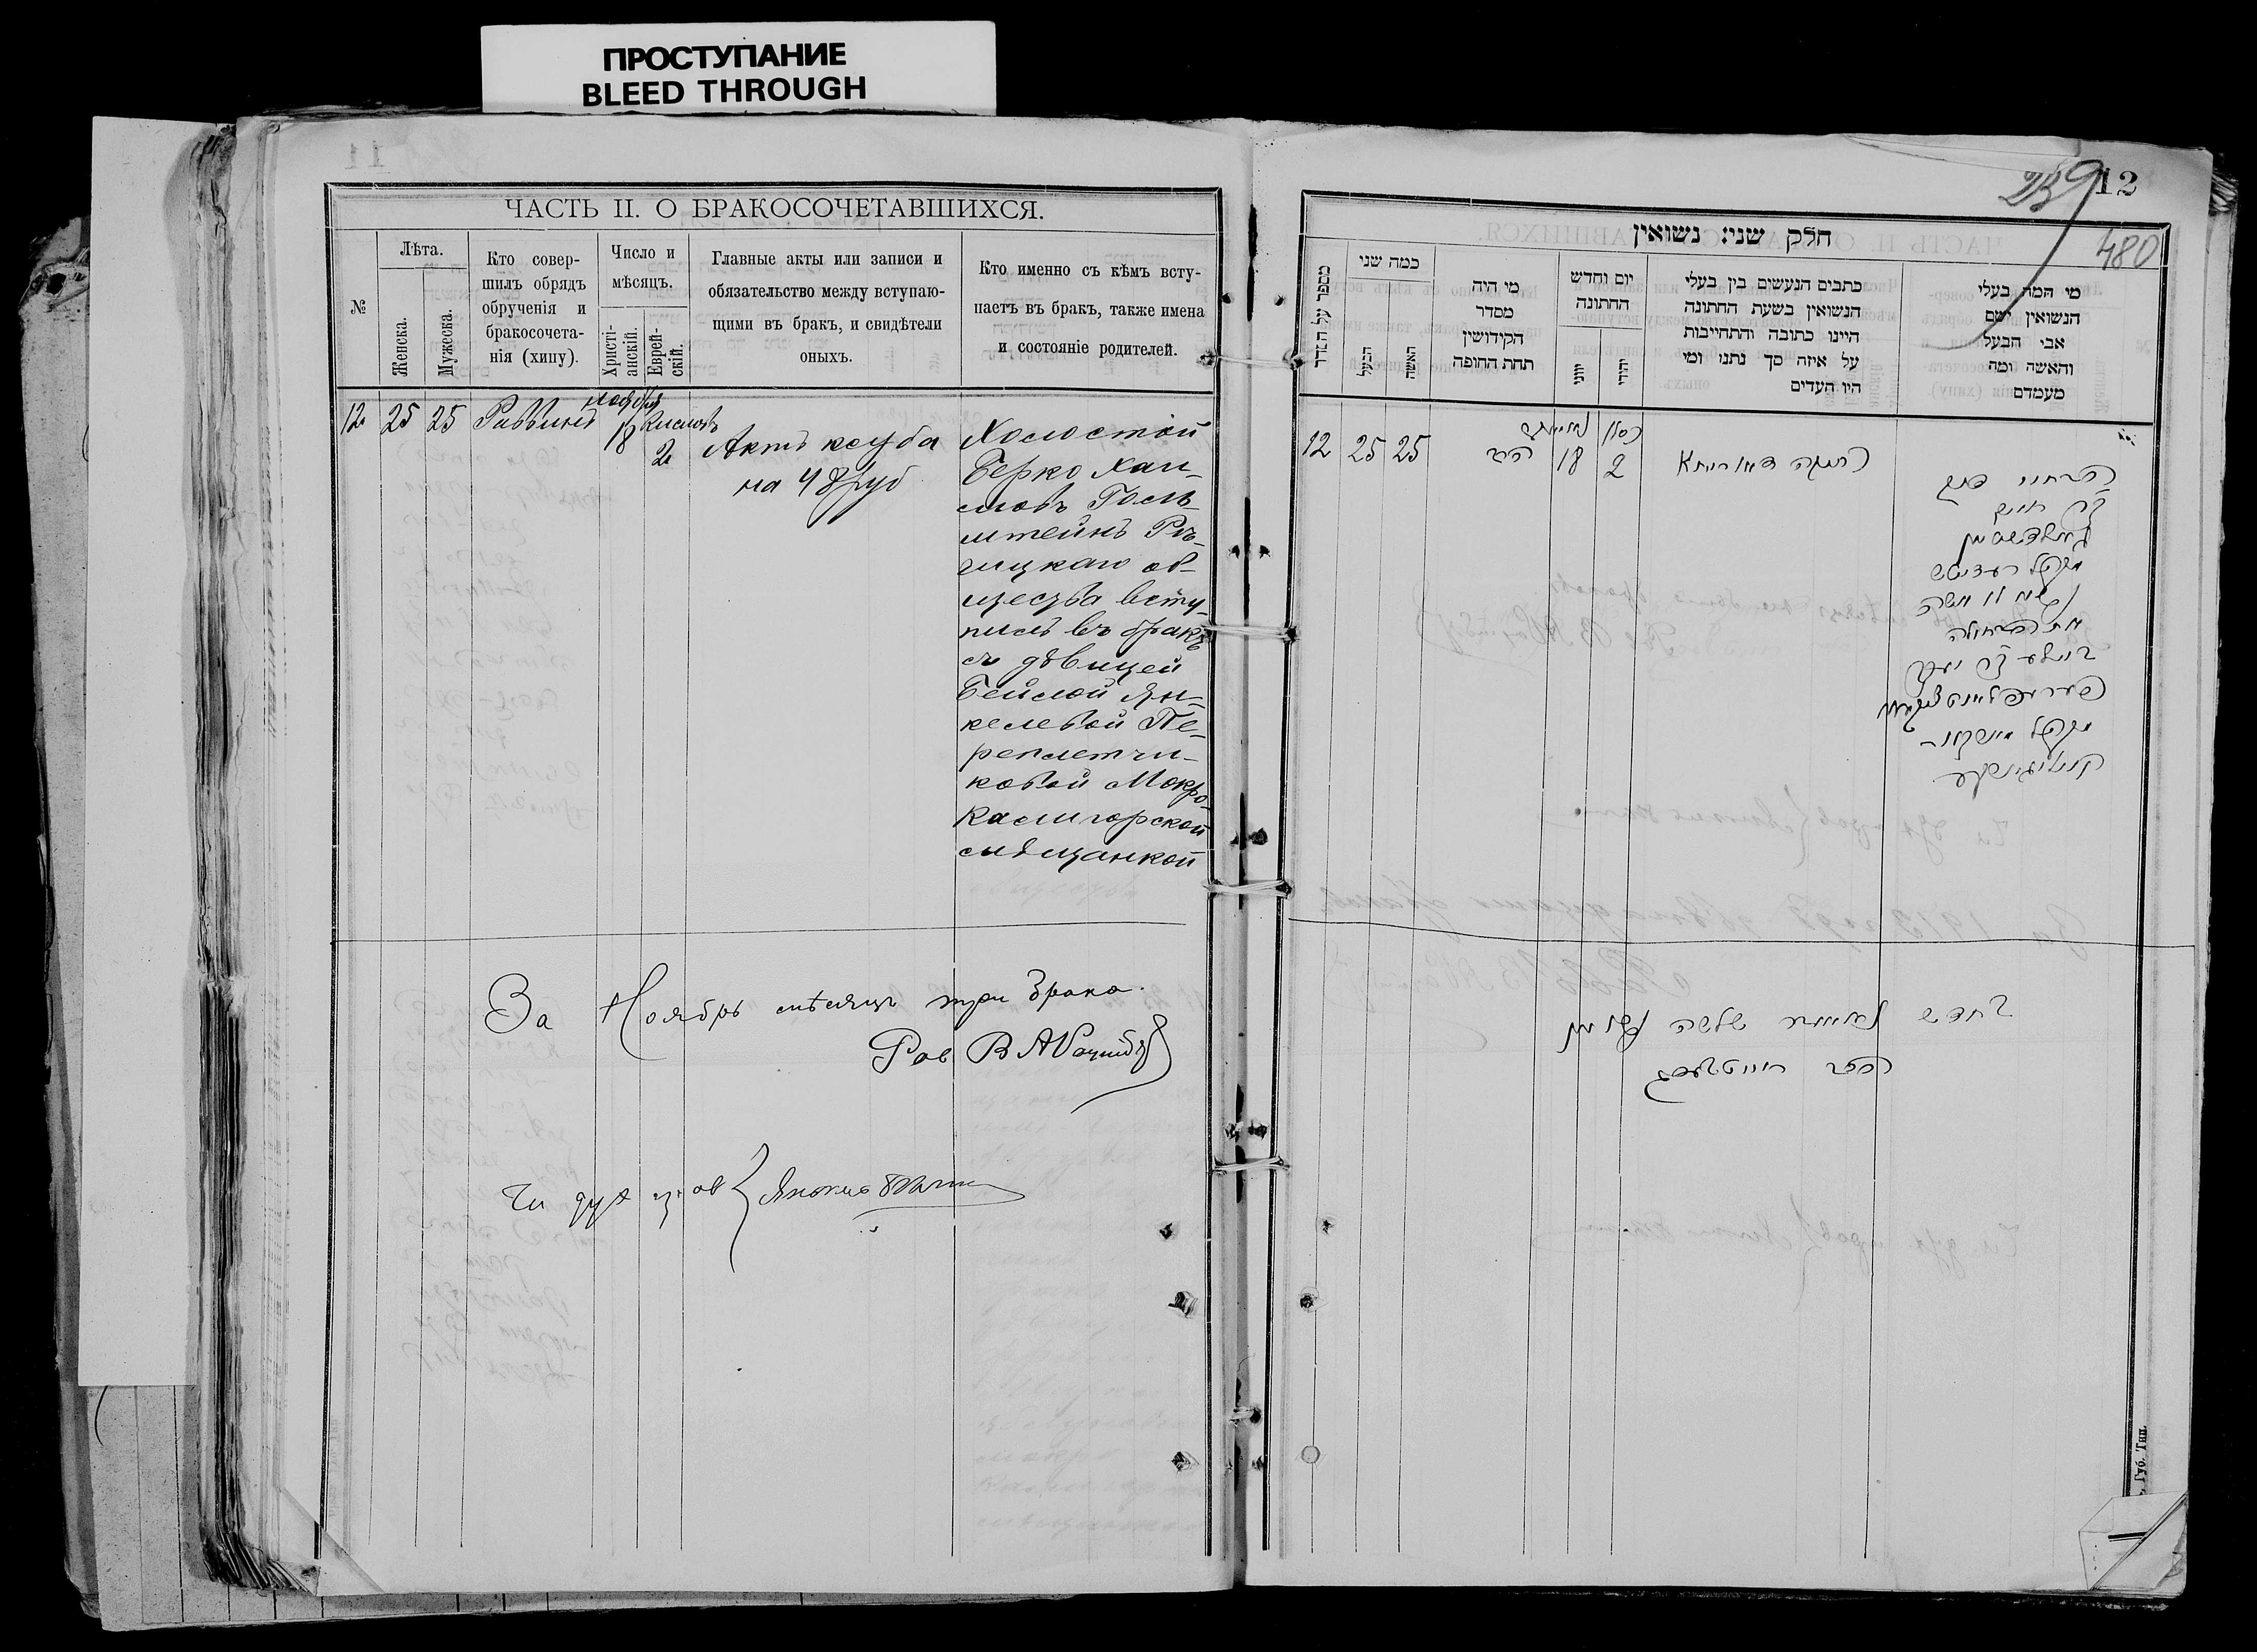 ПРОСТУПАНИЕ
BLEED THROUGH
ЧАСТЬ II. О БРАКОСОЧЕТАВШИХСЯ.
№
Лѣта.
Женска.
Мужеска.
Кто совер-
шилъ обрядъ
обрученія и
бракосочета-
нія (хипу).
Число и
мѣсяцъ.
Христі-
анскій.
Еврей-
скій.
Главные акты или записи и
обязательство между вступаю-
щими въ бракъ, и свидѣтели
оныхъ.
Кто именно съ кѣмъ всту-
паетъ въ бракъ, также имена
и состояніе родителей.
12 25 25 Раввинъ
Ноября
18
Кислевъ
2
Актъ кетуба
на 48 руб
Холостой
Берко Хаи-
мовъ Голь-
штейнъ Рѣ-
чицкаго об-
щества всту-
пилъ въ бракъ
съ дѣвицей
Бейлой Ян-
келевой Пе-
реплетчи-
ковой Мокро-
Калигорской
мѣщанкой
За Ноябрь мѣсяцъ три брака.
Рав В А
Чл дух
12
480
חלק שני: נשואין
מספר על הסדר
כמה שני
הבעל
האשה
מי היה
מסדר
הקידושין
תחת החופה
יום וחדש
החתונה
יווני
יהודי
כתבים הנעשים בין בעלי
הנשואין בשעת החתונה
היינו כתובה והתחייבות
על איזה סך נתנו ומי
היו העדים
מי המה בעלי
הנשואין ושם
אבי הבעל
והאשה ומה
מעמדם
12 25 25 הרב
18
2
כסלו
הבחור
בר חיים
גאלדשטיין
מקהל
נשא לו אשה
את הבתולה
ביילע בר יעקב
מקהל
בחדש שלשה
הרב
Губ. Тип.